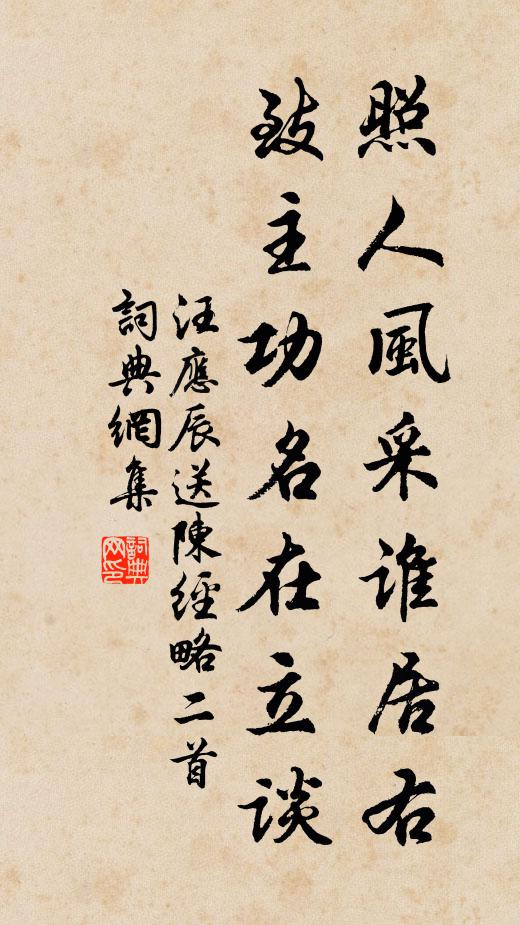 照人風采誰居右
致主功名在立談
汪應辰送陳經略二首
詞典網集
詞典網印